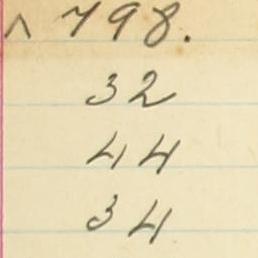 1798.
32
44
34